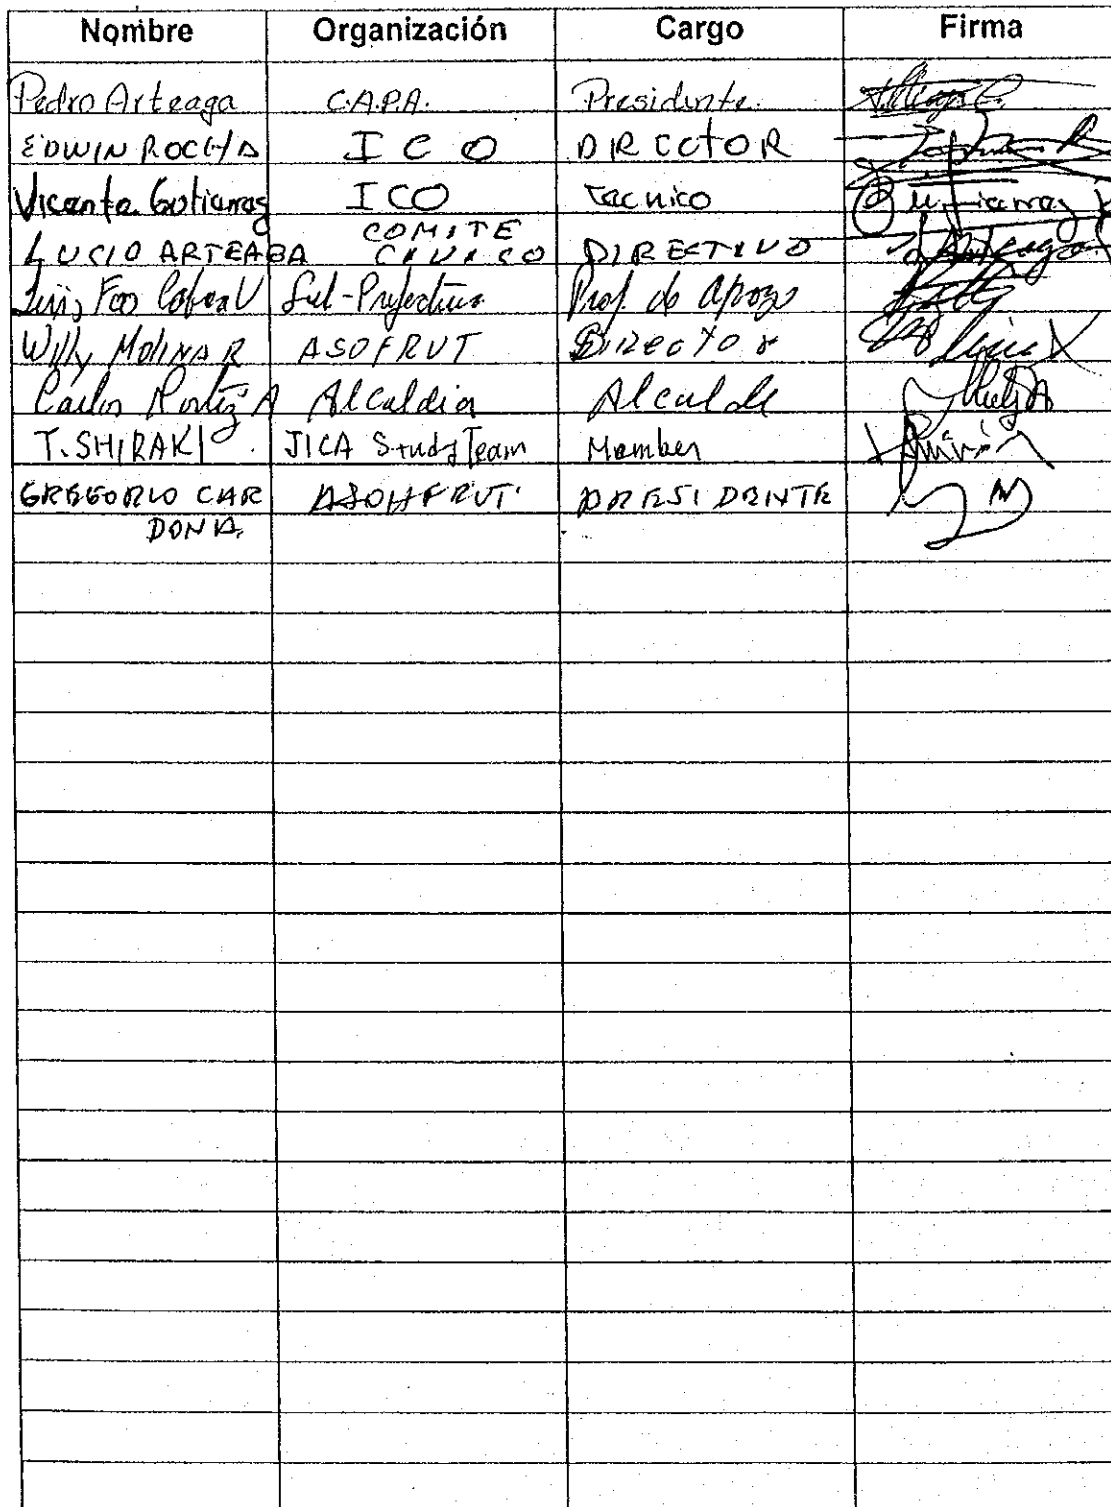 Nombre Organización Cargo Firma
Pedro Arteaga C.A.P.A. Presidente
EDWIN ROCHA ICO DIRECTOR
Vicente Gutierrez ICO Tecnico
LUCIO ARTEAGA COMITE CIVICO DIRECTIVO
Luis Fco Sub-Prefectura Prof. de Apoyo
Willy Molina R ASOFRUT Director
Carlos A Alcaldia Alcalde
T. SHIRAKI JICA Study Team Member
GREGORIO CAR ASOHFRUT. PRESIDENTE
DONA.